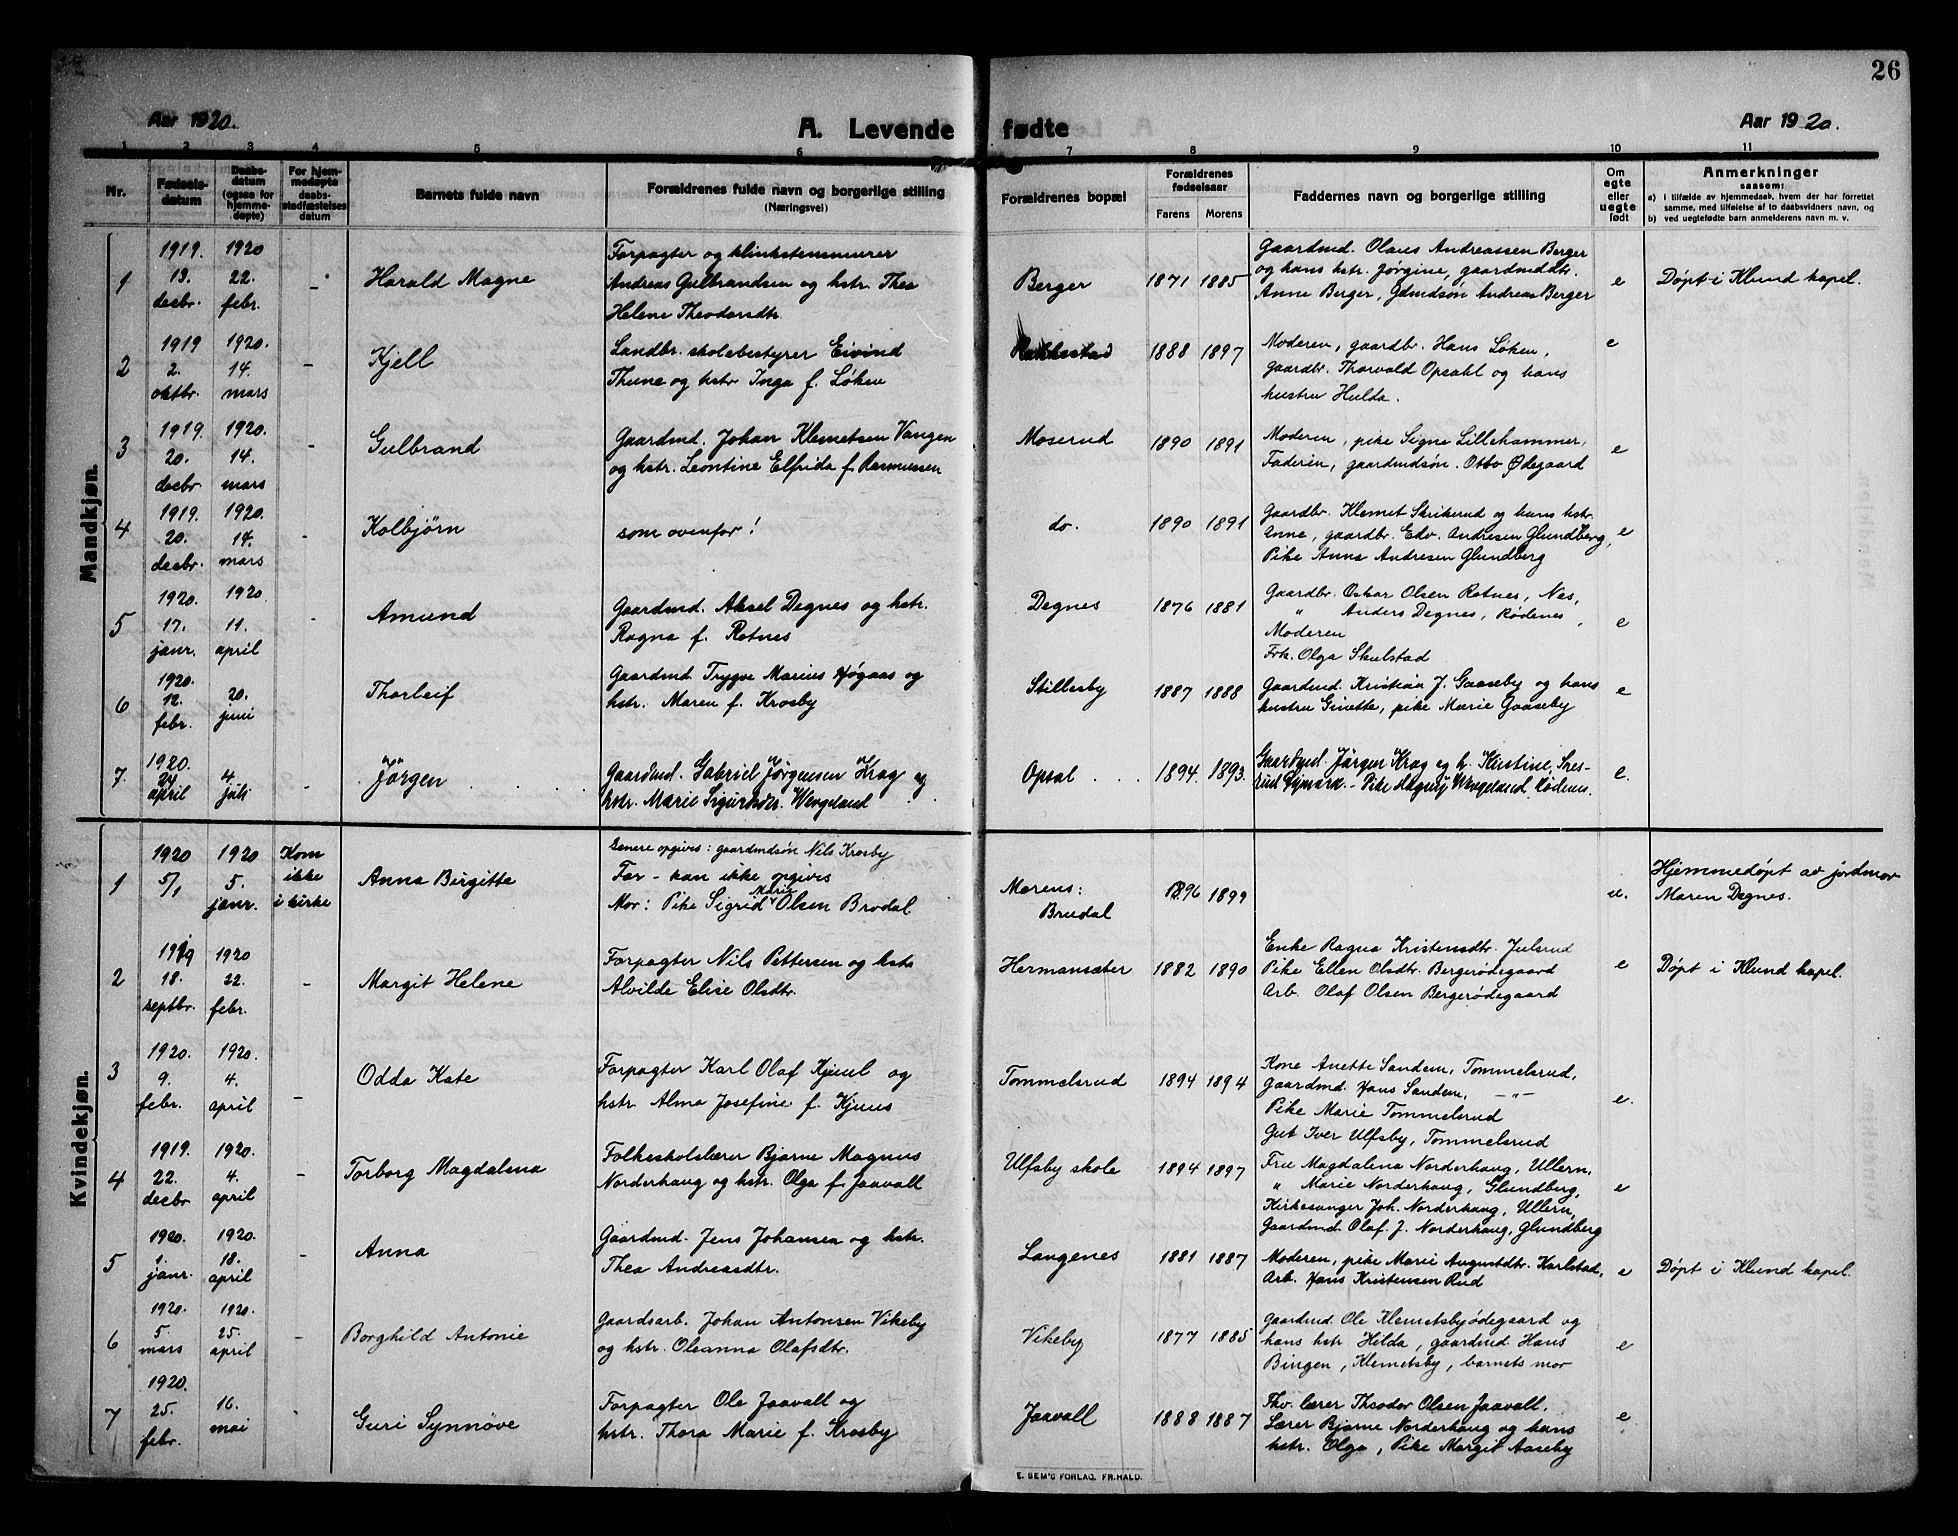 26
Aar 1920.
A. Levende fødte
Aar 1920.
1 2 3 4 5 6 7 8 9 10 11
Nr.
Fødsels-
datum
Daabs-
datum
(ogsaa for
hjemme-
døpte)
For hjem-
medøpte
daabs-
stadfæstelses
datum
Barnets fulde navn
Forældrenes fulde navn og borgerlige stilling
(Næringsvei)
Forældrenes bopæl
Forældrenes
fødselsaar
Farens Morens
Faddernes navn og borgerlige stilling
Om
egte
eller
uegte
født
Anmerkninger
saasom:
a) i tilfælde av hjemmedaab, hvem der har forrettet
samme, med tilføielse af to daabsvidners navn, og
b) ved uegtefødte barn anmelderens navn m. v.
Mandkjøn.
1
1919.
13.
decbr.
1920
22.
febr.
-
Harald Magne
Forpagter og klinkstensmurer
Andreas Gulbrandsen og hstr. Thea
Helene Theodorsdtr.
Berger
1871 1885
Gaardmd. Olaus Andreassen Berger
og hans hstr. Jørgine, gaardmddtr.
Anne Berger, Gdmdsøn Andreas Berger
e
Døpt i Klund kapel.
2
1919
2.
oktbr.
1920.
14.
mars
-
Kjell
Landbr. skolebestyrer Eivind
Thune og hstr Inga f. Løken
Rakkestad
1888 1897
Moderen, gaardbr. Hans Løken,
gaardbr. Thorvald Opsahl og hans
hustru Hulda.
e
3
1919.
20.
decbr
1920.
14.
mars
-
Gulbrand
Gaardmd. Johan Klemetsen Vangen
og hstr. Leontine Elfrida f. Rasmussen
Moserud
1890 1891
Moderen, pike Signe Lillehammer,
Faderen, gaardmdsøn. Otto Ødegaard
e
4
1919.
20.
decbr.
1920.
14.
mars
-
Kolbjørn
som ovenfor!
do.
1890 1891
Gaardbr. Klemet Skrikerud og hans hstr.
Anne, gaardbr. Edv. Andresen Glundberg,
Pike Anna Andresen Glundberg
e
5
1920.
17.
janr.
1920
11.
april
-
Amund
Gaardmd. Aksel Degnes og hstr.
Ragna f. Rotnes
Degnes
1876 1881
Gaardbr. Oskar Olsen Rotnes, Nes,
" Anders Degnes, Rødenes,
Moderen
Frk. Olga Skulstad
e
6
1920.
12.
febr.
20.
juni
-
Thorleif
Gaardmd Trygve Marius Høgaas og
hstr. Maren f. Krosby
Stillesby
1887 1888
Gaardmd. Kristian J. Gaaseby og hans
hustru Ginette, pike Marie Gaaseby
e
7.
1920.
24
april
4
juli
-
Jörgen
Gaardmd. Gabriel Jørgensen Krog og
hstr. Marie Sigurdsdtr. Wengeland
Opsal
1894. 1893.
Gaardmd. Jörgen Krog og h. Kristine,
Pike Wengeland Rødenes.
e.
Kvindekjøn.
1
1920
5/1
1920
5.
janr.
Kom
ikke
i kirke
Anna Birgitte
Senere opgives: gaardmdsøn Nils Krosby
Far - kan ikke opgives
Mor: Pike Sigrid Marie Olsen Brødal
Morens:
Bruedal
1896 1899
u.
Hjemmedøpt av jordmor
Maren Degnes.
2
1919
18.
septbr.
1920
22.
febr.
-
Margit Helene
Forpagter Nils Pettersen og hstr
Alvilde Elise Olsdtr.
Hermansæter
1882 1890
Enke Ragna Kristensdtr. Julsrud
Pike Ellen Olsdtr. Bergerødegaard
Arb. Olaf Olsen Bergerødegaard
e
Døpt i Klund kapel.
3
1920.
9.
febr.
1920.
4.
april
-
Odda Kate
Forpagter Karl Olaf Kjuul og
hstr. Alma Josefine f. Kjuus
Tommelsrud
1894 1894
Kone Anette Sandem, Tommelsrud,
Gaardmd. Hans Sandem, -"-
Pike Marie Tommelsrud
Gut Iver Ulfsby, Tommelsrud
e.
4
1919.
22.
decbr
1920.
4.
april
-
Torborg Magdalena
Folkeskolelærer Bjarne Magnus
Norderhaug og hstr. Olga f. Jaavall
Ulfsby skole
1894 1897
Frue Magdalena Norderhaug, Ullern,
" Marie Norderhaug, Glundberg,
Kirkesanger Joh. Norderhaug, Ullern,
Gaardmd. Olaf J. Norderhaug, Glundberg
e
5
1920.
1.
janr.
1920.
18.
april
-
Anna
Gaardmd. Jens Johansen og hstr.
Thea Andreasdtr.
Langenes
1881 1887
Moderen, pike Marie Augustdtr. Karlstad,
Arb. Hans Kristensen Rud
e
Døpt i Klund kapel.
6
1920.
5.
mars
1920.
25.
april
-
Borghild Antonie
Gaardsarb. Johan Antonsen Vikeby
og hstr. Oleanna Olafsdtr.
Vikeby
1877 1885
Gaardmd Ole Klemetsbyødegaard og
hans hstr Hilda, gaardmd. Hans
Bingen, Klemetsby, barnets mor
e
7
1920.
25.
febr.
16.
mai
-
Guri Synnøve
Forpagter Ole Jaavall og
hstr. Thora Marie f. Krosby
Jaavall
1888 1887
Fhv. lærer Theodor Olsen Jaavall,
Lærer Bjarne Norderhaug og hans
hstr. Olga, Pike Margit Aaseby
e.
E. SEM'S FORLAG. FR.HALD.